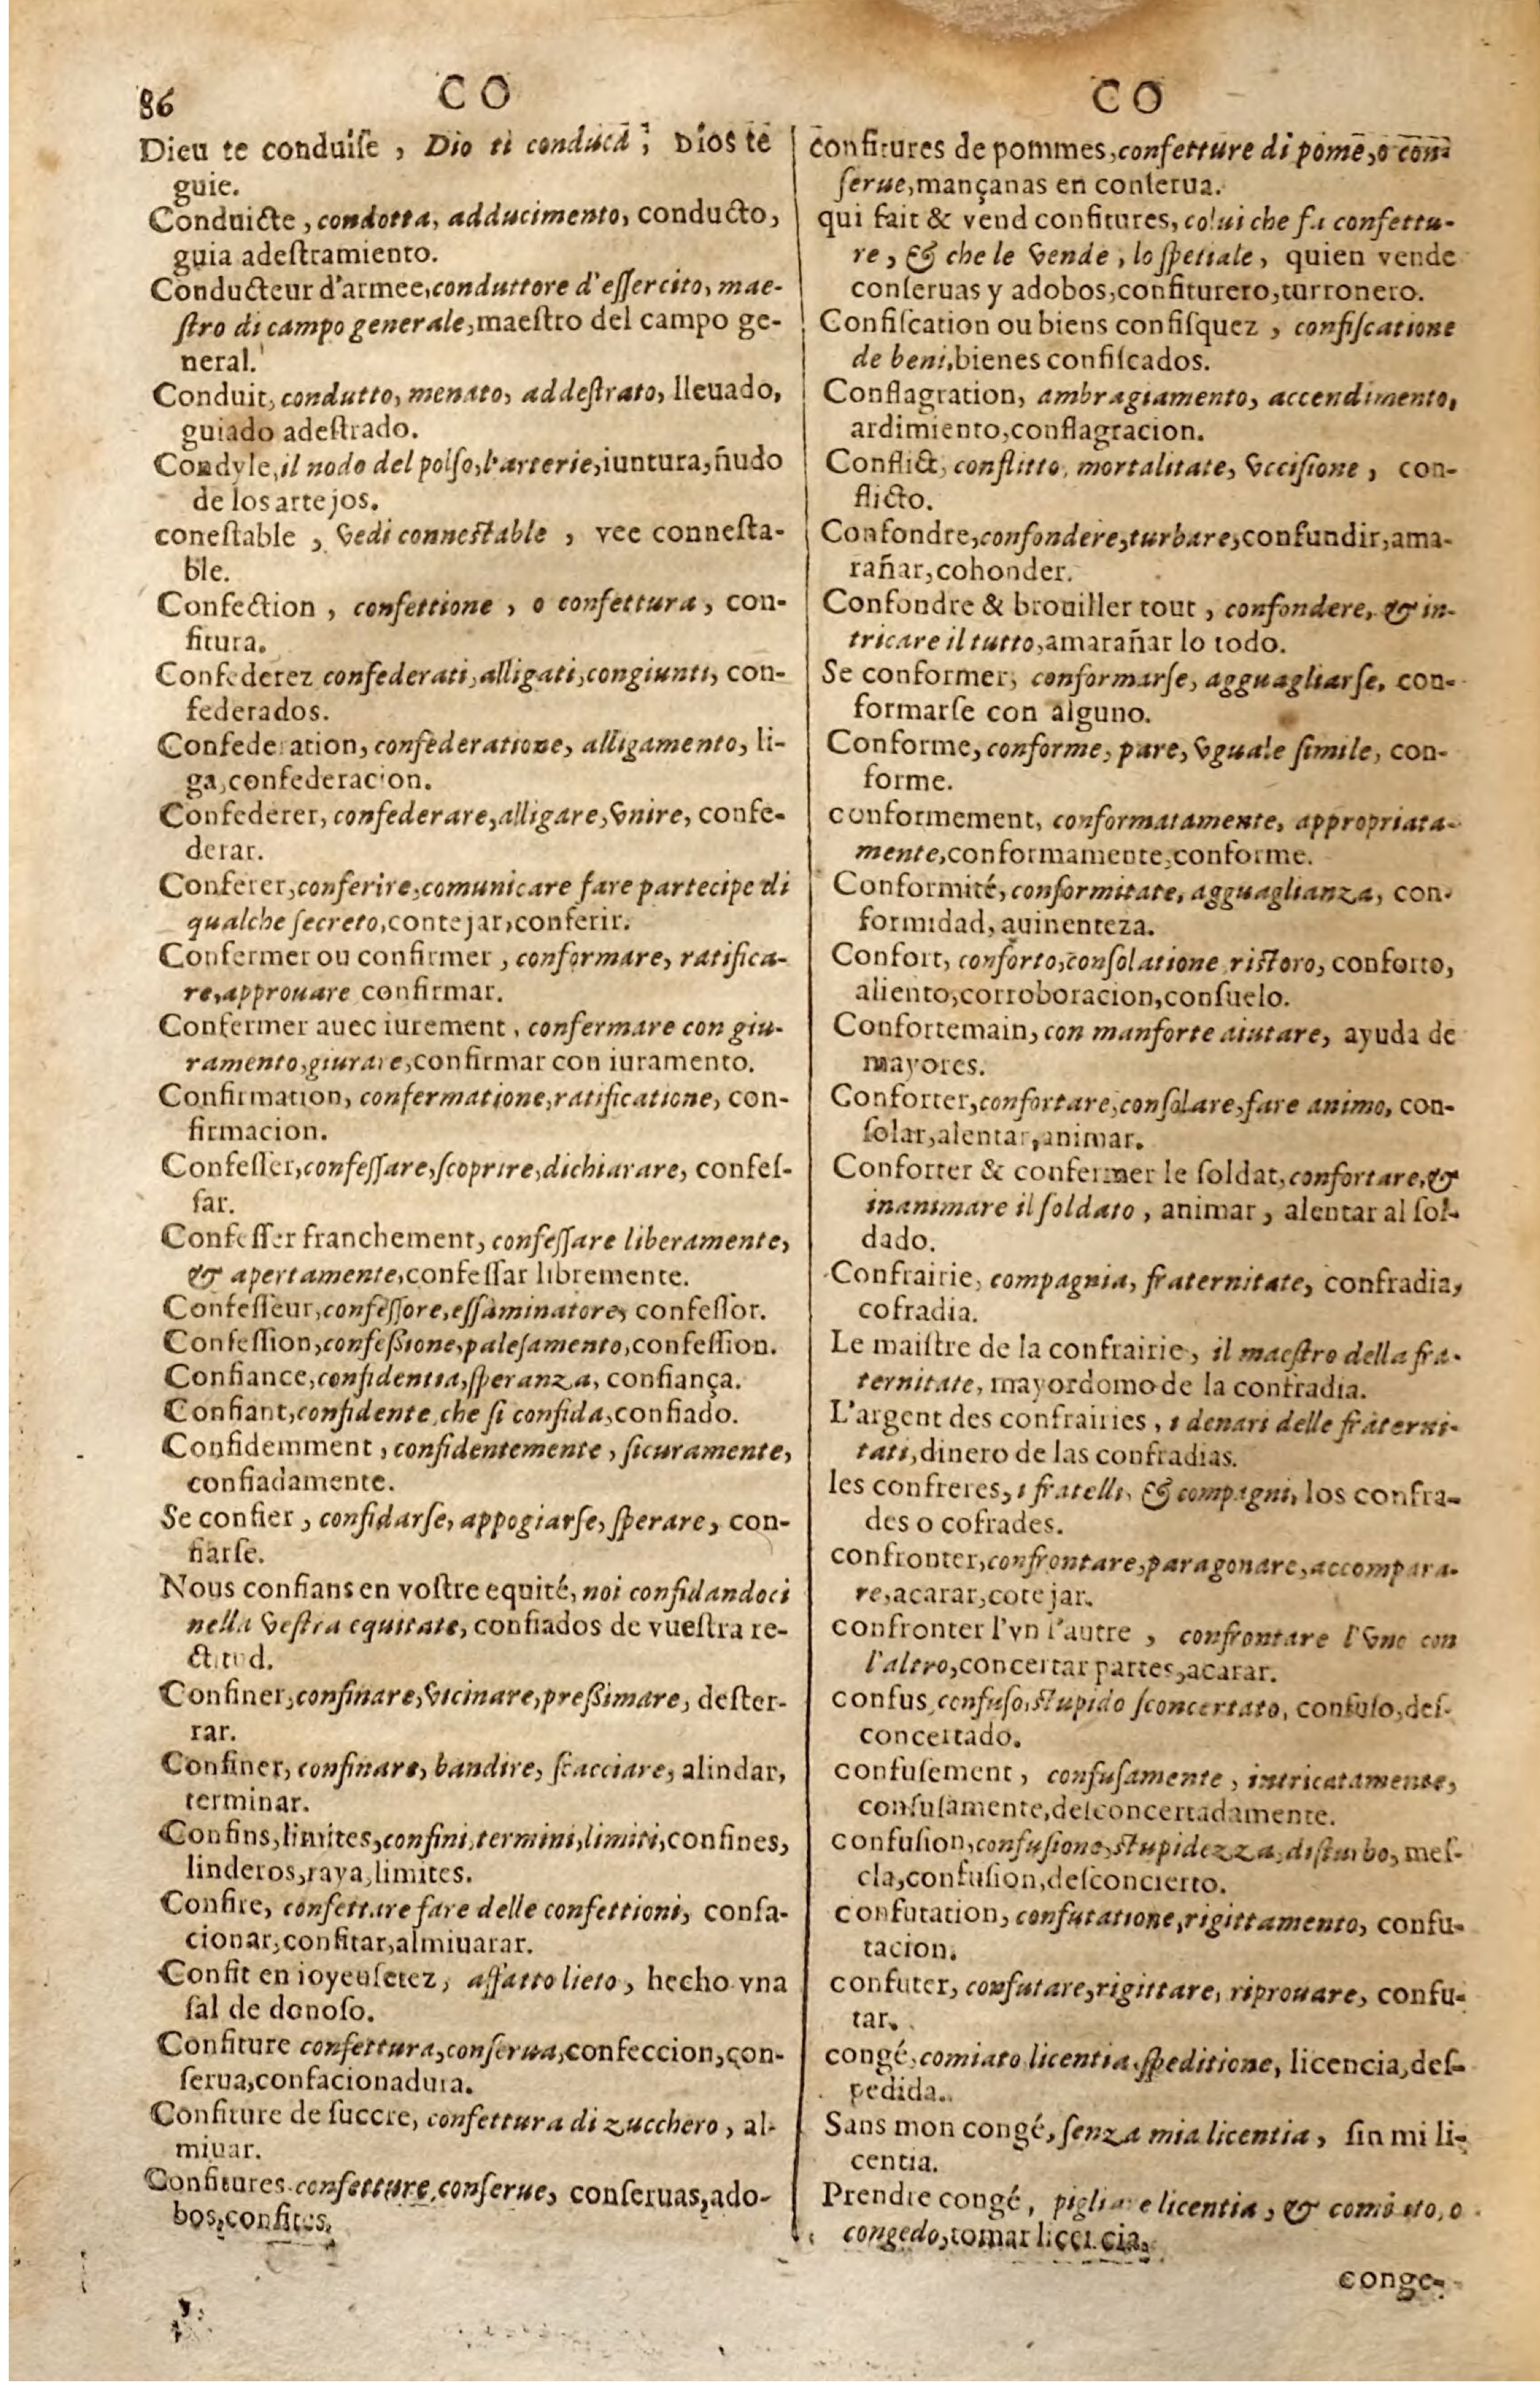 86
C O
Dieu te conduiſe , Dio ti conduca ; Dios te
guie.
Conduicte , condotta, adducimento, conducto,
guia adeſtramiento.
Conducteur d'armee,conduttore d'eſſercito, mae-
ſtro di campo generale,maeſtro del campo ge-
neral.
Conduit, condutto, menato, addeſtrato, lleuado,
guiado adeſtrado.
Condyle,il nodo del polſo,l'arterie,iuntura,ñudo
de los artejos.
coneſtable , vedi conneſtable , vee conneſta-
ble.
Confection , confettione , o confettura , con-
fitura.
Confederez confederati,alligati,congiunti, con-
federados.
Confederation, confederatione, alligamento, li-
ga,confederacion.
Confederer, confederare,alligare,vnire, confe-
derar.
Conferer,conferire,comunicare fare partecipe di
qualche ſecreto,contejar,conferir.
Confermer ou confirmer , conformare, ratifica-
re,approuare confirmar.
Confermer auec iurement , confermare con giu-
ramento,giurare,confirmar con iuramento.
Confirmation, confermatione,ratificatione, con-
firmacion.
Confeſſer,confeſſare,ſcoprire,dichiarare, confeſ-
ſar.
Confeſſer franchement, confeſſare liberamente,
& apertamente,confeſſar libremente.
Confeſſeur,confeſſore,eſſaminatore, confeſſor.
Confeſſion,confeßione,paleſamento,confeſſion.
Confiance,confidentia,ſperanza, confiança.
Confiant,confidente che ſi confida,confiado.
Confidemment , confidentemente , ſicuramente,
confiadamente.
Se confier , confidarſe, appogiarſe, ſperare, con-
fiarſe.
Nous confians en voſtre equité, noi confidandoci
nella veſtra equitate, confiados de vueſtra re-
ctitud.
Confiner,confinare,vicinare,preßimare, deſter-
rar.
Confiner, confinare, bandire, ſcacciare, alindar,
terminar.
Confins,limites,confini,termini,limiti,confines,
linderos,raya,limites.
Confire, confettare fare delle confettioni, confa-
cionar,confitar,almiuarar.
Confit en ioyeuſetez, affatto lieto , hecho vna
ſal de donoſo.
Confiture confettura,conſerua,confeccion,con-
ſerua,confacionadura.
Confiture de ſuccre, confettura di zucchero , al-
miuar.
Confitures confetture,conſerue, conſeruas,ado-
bos,confites.
C O
confitures de pommes,confetture di pome,o con-
ſerue,mançanas en conſerua.
qui fait & vend confitures, colui che fa confettu-
re , & che le vende , lo ſpetiale , quien vende
conſeruas y adobos,confiturero,turronero.
Confiſcation ou biens confiſquez , confiſcatione
de beni,bienes confiſcados.
Conflagration, ambragiamento, accendimento,
ardimiento,conflagracion.
Conflict, conflitto, mortalitate, vcciſione , con-
flicto.
Confondre,confondere,turbare,confundir,ama-
rañar,cohonder.
Confondre & brouiller tout , confondere, & in-
tricare il tutto,amarañar lo todo.
Se conformer, conformarſe, agguagliarſe, con-
formarſe con alguno.
Conforme, conforme, pare, vguale ſimile, con-
forme.
conformement, conformatamente, appropriata-
mente,conformamente,conforme.
Conformité, conformitate, agguaglianza, con-
formidad, auinenteza.
Confort, conforto,conſolatione riſtoro, conforto,
aliento,corroboracion,conſuelo.
Confortemain, con manforte aiutare, ayuda de
mayores.
Conforter,confortare,conſolare,fare animo, con-
ſolar,alentar,animar.
Conforter & confermer le ſoldat,confortare,&
inanimare il ſoldato , animar , alentar al ſol-
dado.
Confrairie, compagnia, fraternitate, confradia,
cofradia.
Le maiſtre de la confrairie , il maeſtro della fra-
ternitate, mayordomo de la confradia.
L'argent des confrairies , i denari delle fraterni-
tati,dinero de las confradias.
les confreres, i fratelli, & compagni, los confra-
des o cofrades.
confronter,confrontare,paragonare,accompara-
re,acarar,cotejar.
confronter l'vn l'autre , confrontare l'vno con
l'altro,concertar partes,acarar.
confus,confuſo,ſtupido ſconcertato, confuſo,deſ-
concertado.
confuſement , confuſamente , intricatamente,
confuſamente,deſconcertadamente.
confuſion,confuſione,ſtupidezza,diſturbo, meſ-
cla,confuſion,deſconcierto.
confutation, confutatione,rigittamento, confu-
tacion.
confuter, confutare,rigittare, riprouare, confu-
tar.
congé,comiato licentia,ſpeditione, licencia,deſ-
pedida.
Sans mon congé, ſenza mia licentia , ſin mi li-
centia.
Prendre congé , pigliare licentia , & comiato, o
congedo,tomar licencia.
conge-